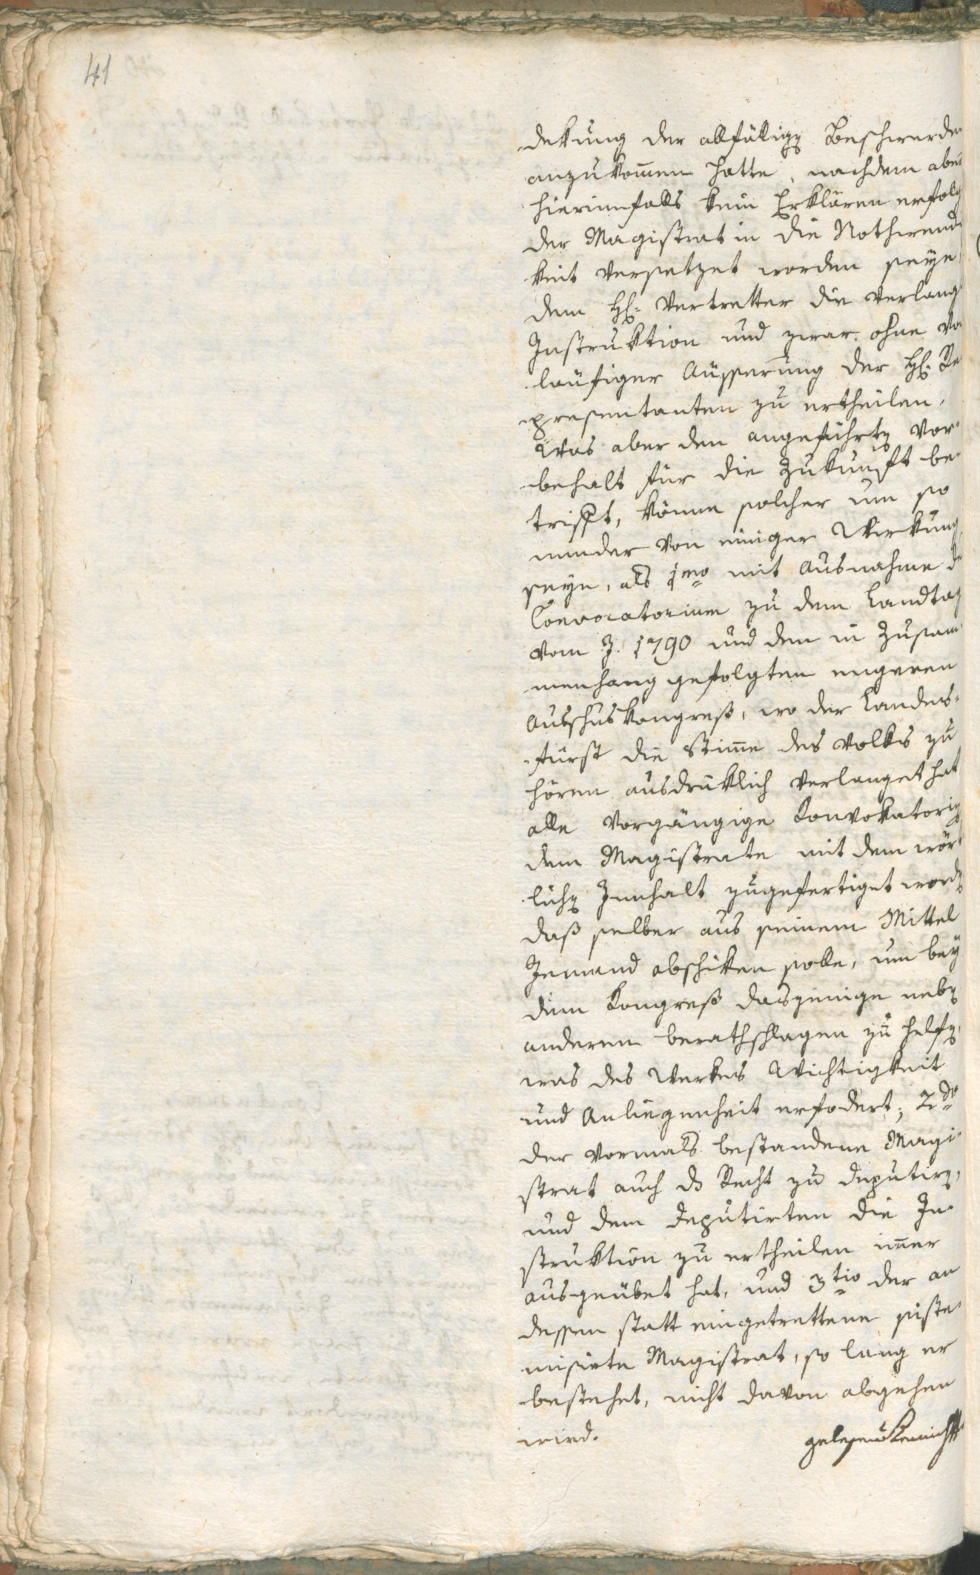 41
dekung der allfälligen Beschwerden
anzukom̅en hatte, nachdem aber
hierinnfalls kein Erklären erfolg
der Magistrat in die Nothwend
keit versetzet worden seye,
dem H: Vertretter die verlang
Instruktion und zwar ohne vo
läufiger Äusserung der H: Re
presentanten zu ertheilen,
Was aber den angeführten Vor-
behalt für die Zukunft be-
trifft, könne solcher um so
minder von einiger Wirkung
seyn, als 1mo mit Ausnahme d
Convocatorium zu dem Landtag
vom J. 1790 und dem in Zusam
menhang gefolgten engeren
Ausschuskongreß, wo der Landes-
fürst die Stim̅e des Volks zu
hören ausdrüklich verlanget hat
alle vorgängige Konvokatorien
dem Magistrate mit dem wört
lichen Innhalt zugefertiget worden
daß selber aus seinem Mittel
Jemand abschiken solle, um bey
dem Kongreß dasjenige nebst
anderen berathschlagen zu helfen,
was des Werkes Wichtigkeit
und Anliegenheit erfodert; 2do
der vormals bestandene Magi-
strat auch das Recht zu deputiren,
und dem Deputirten die In-
struktion zu ertheilen im̅er
ausgeübet hat, und 3tio der an
dessen statt eingetrettene siste-
misirte Magistrat, so lang er
bestehet, nicht davon abgehen
wird.
gelesen